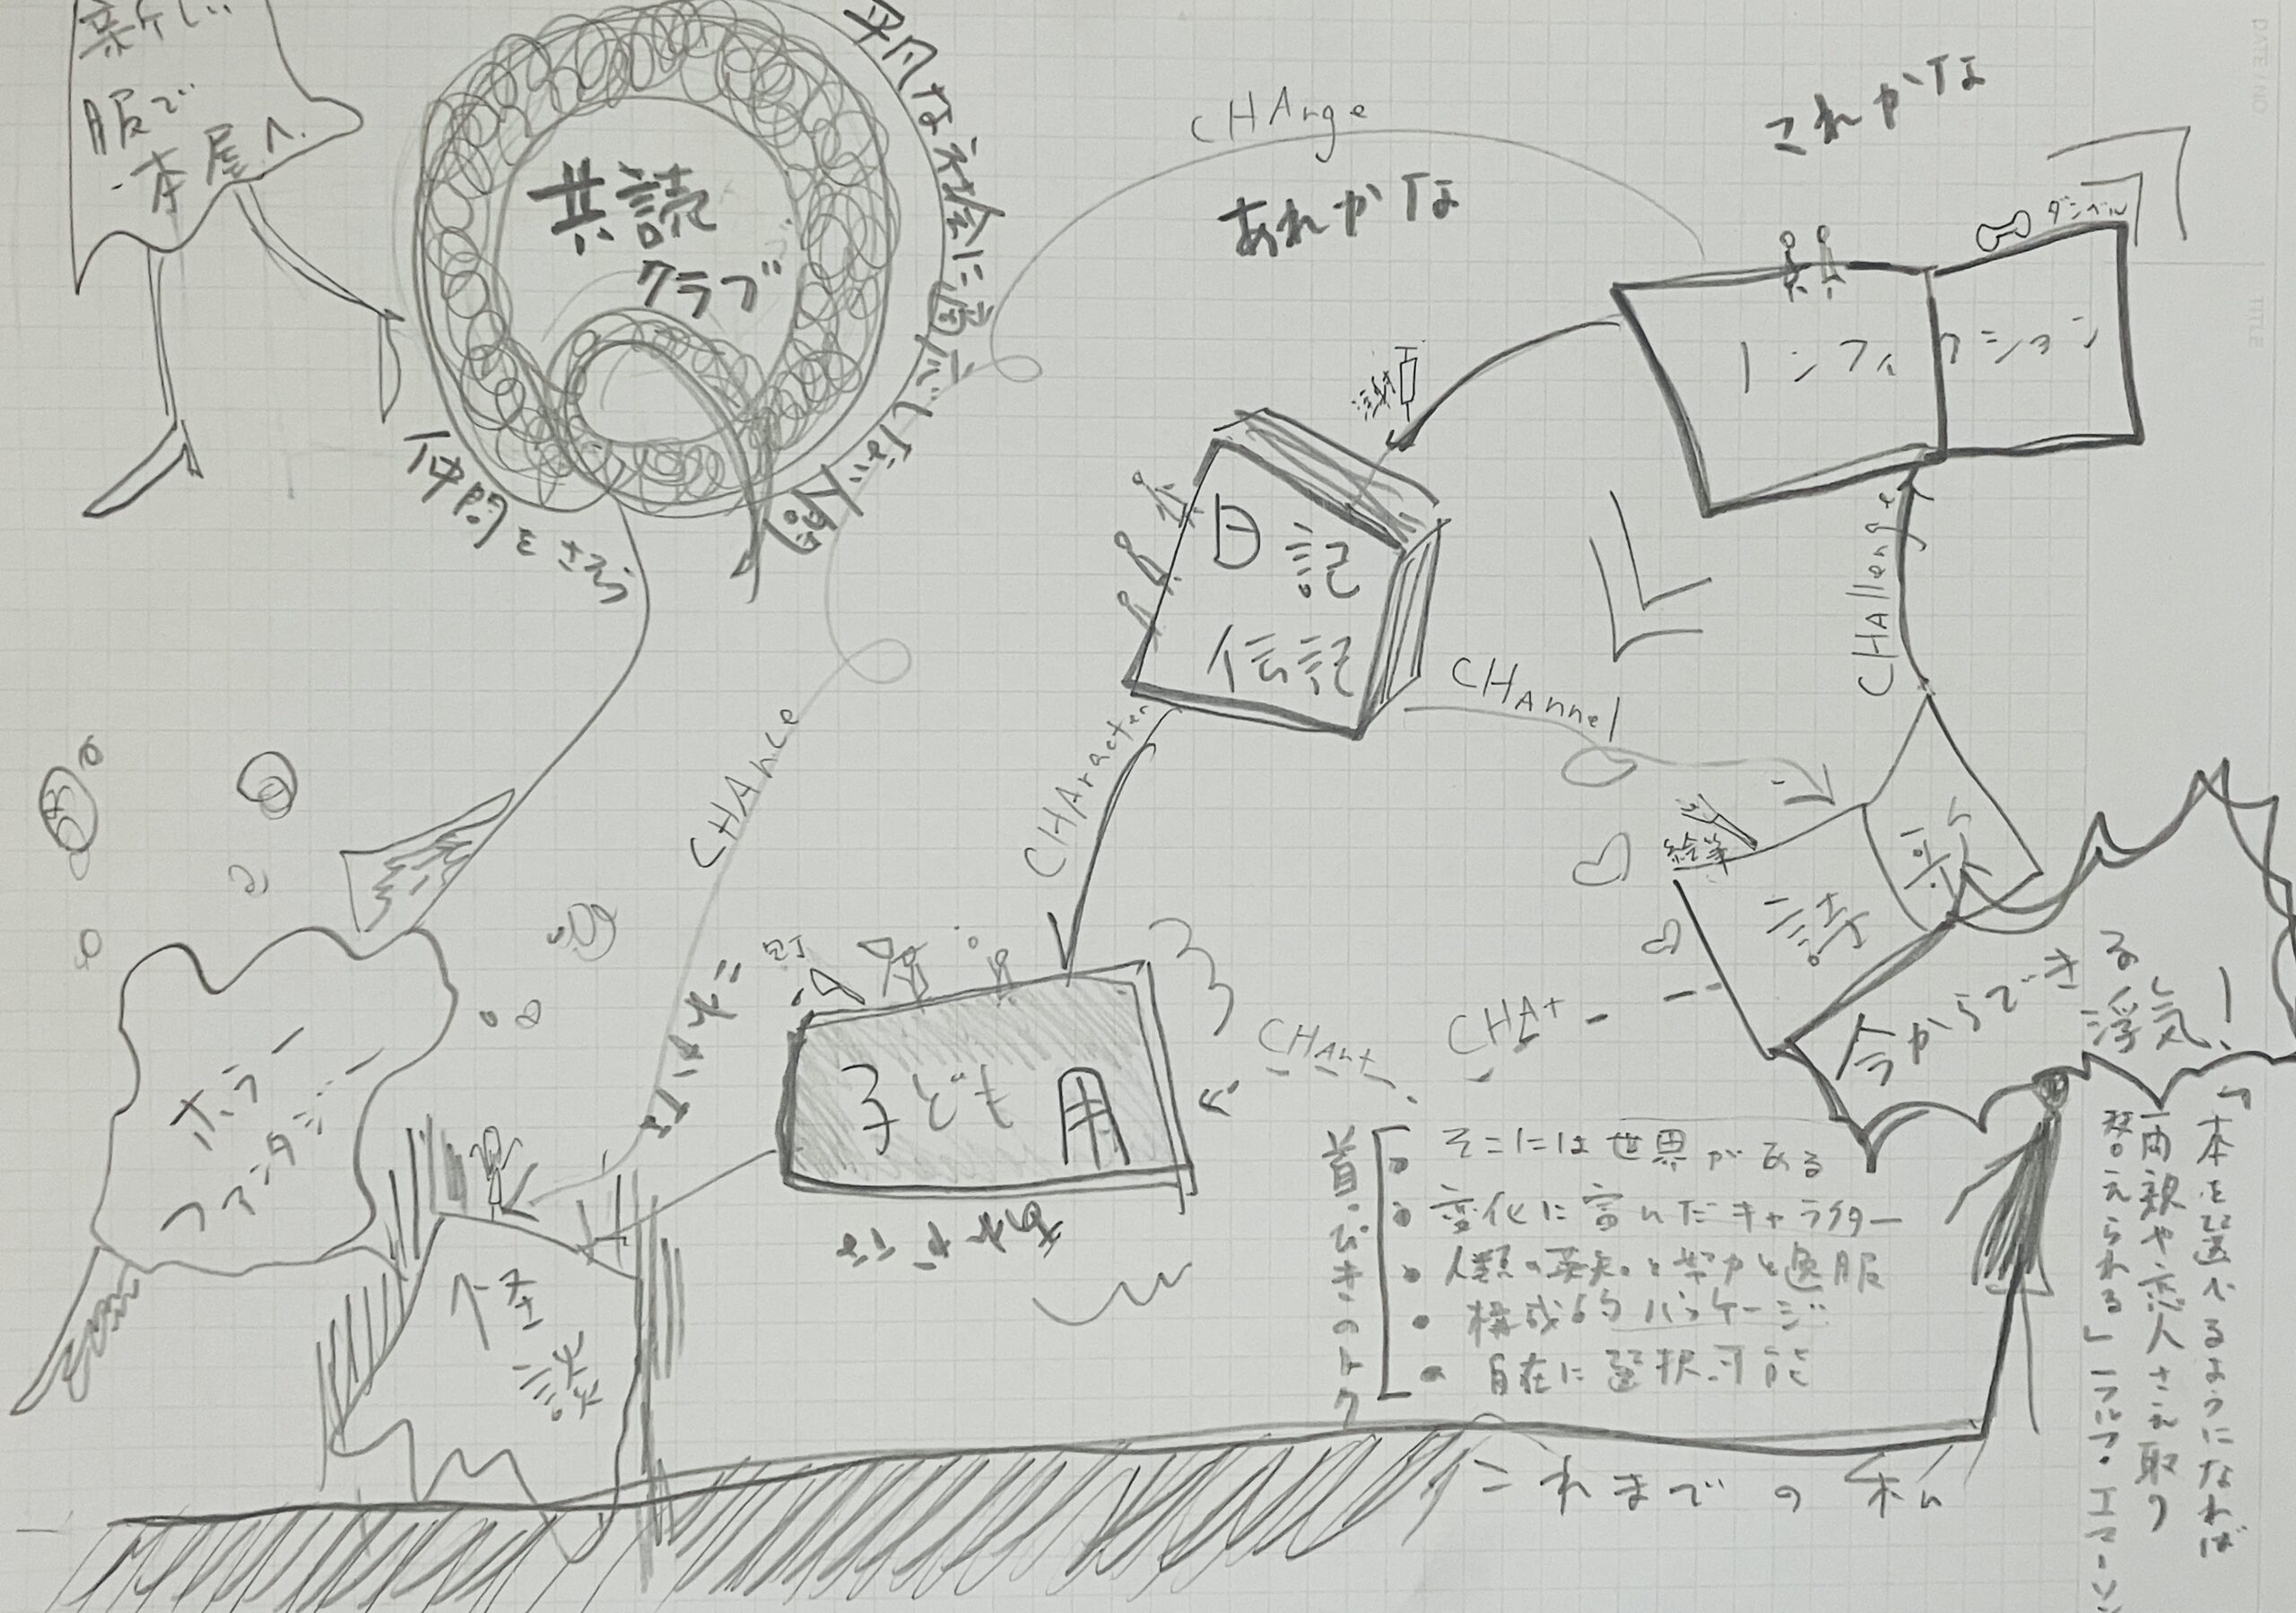 新しい
服で
本屋へ.
共読
クラブ
仲間をさそう
平凡な社会に
CHAnge
あれかな
これかな
ダンベル
ノンフィクション
注射
日記
伝記
CHAllenge
CHAnnel
CHAracter
CHAnce
絵筆
詩
歌
今からできる
浮気!
CHAt
CHAnt
子ども用
ホラー
ファンタジー
怪談
首っぴきのトク
・そこには世界がある
・変化に富んだキャラクター
・人類の英知と努力と過服
・構成的パッケージ
・自在に選択可能
「本を選べるようになれば
両親や恋人さえ取り
替えられる」ーラルフ・エマーソン
これまでの私